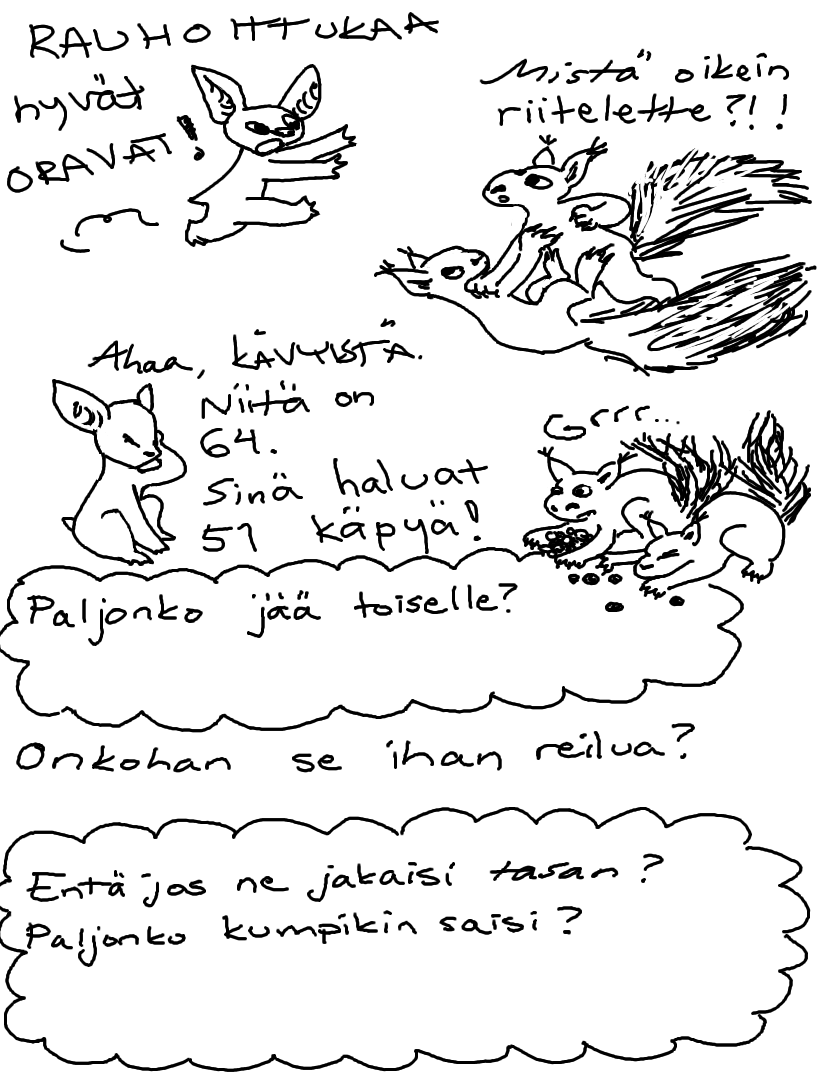 RAUHOITTUKAA
hyvät
ORAVAT!
Mistä oikein
riitelette?!!
Ahaa, KÄVYISTÄ.
Niitä on
64.
Sinä haluat
51 käpyä!
Grrr...
Paljonko jää toiselle?
Onkohan se ihan reilua?
Entä jos ne jakaisi tasan?
Paljonko kumpikin saisi?